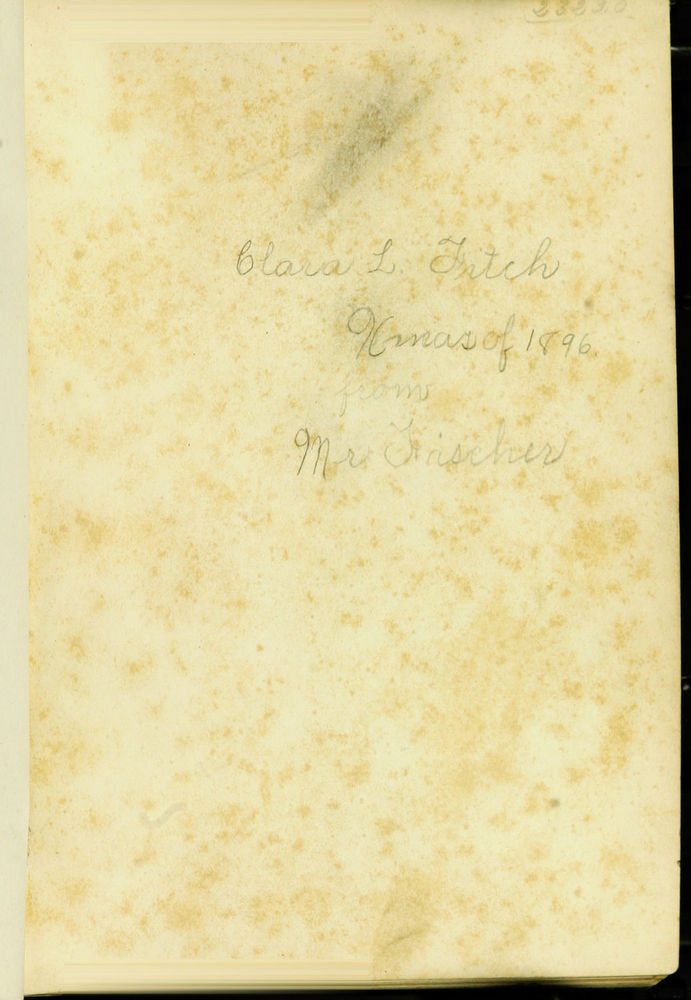 Clara L. Fitch
Xmas of 1896.
from
Mr Fischer